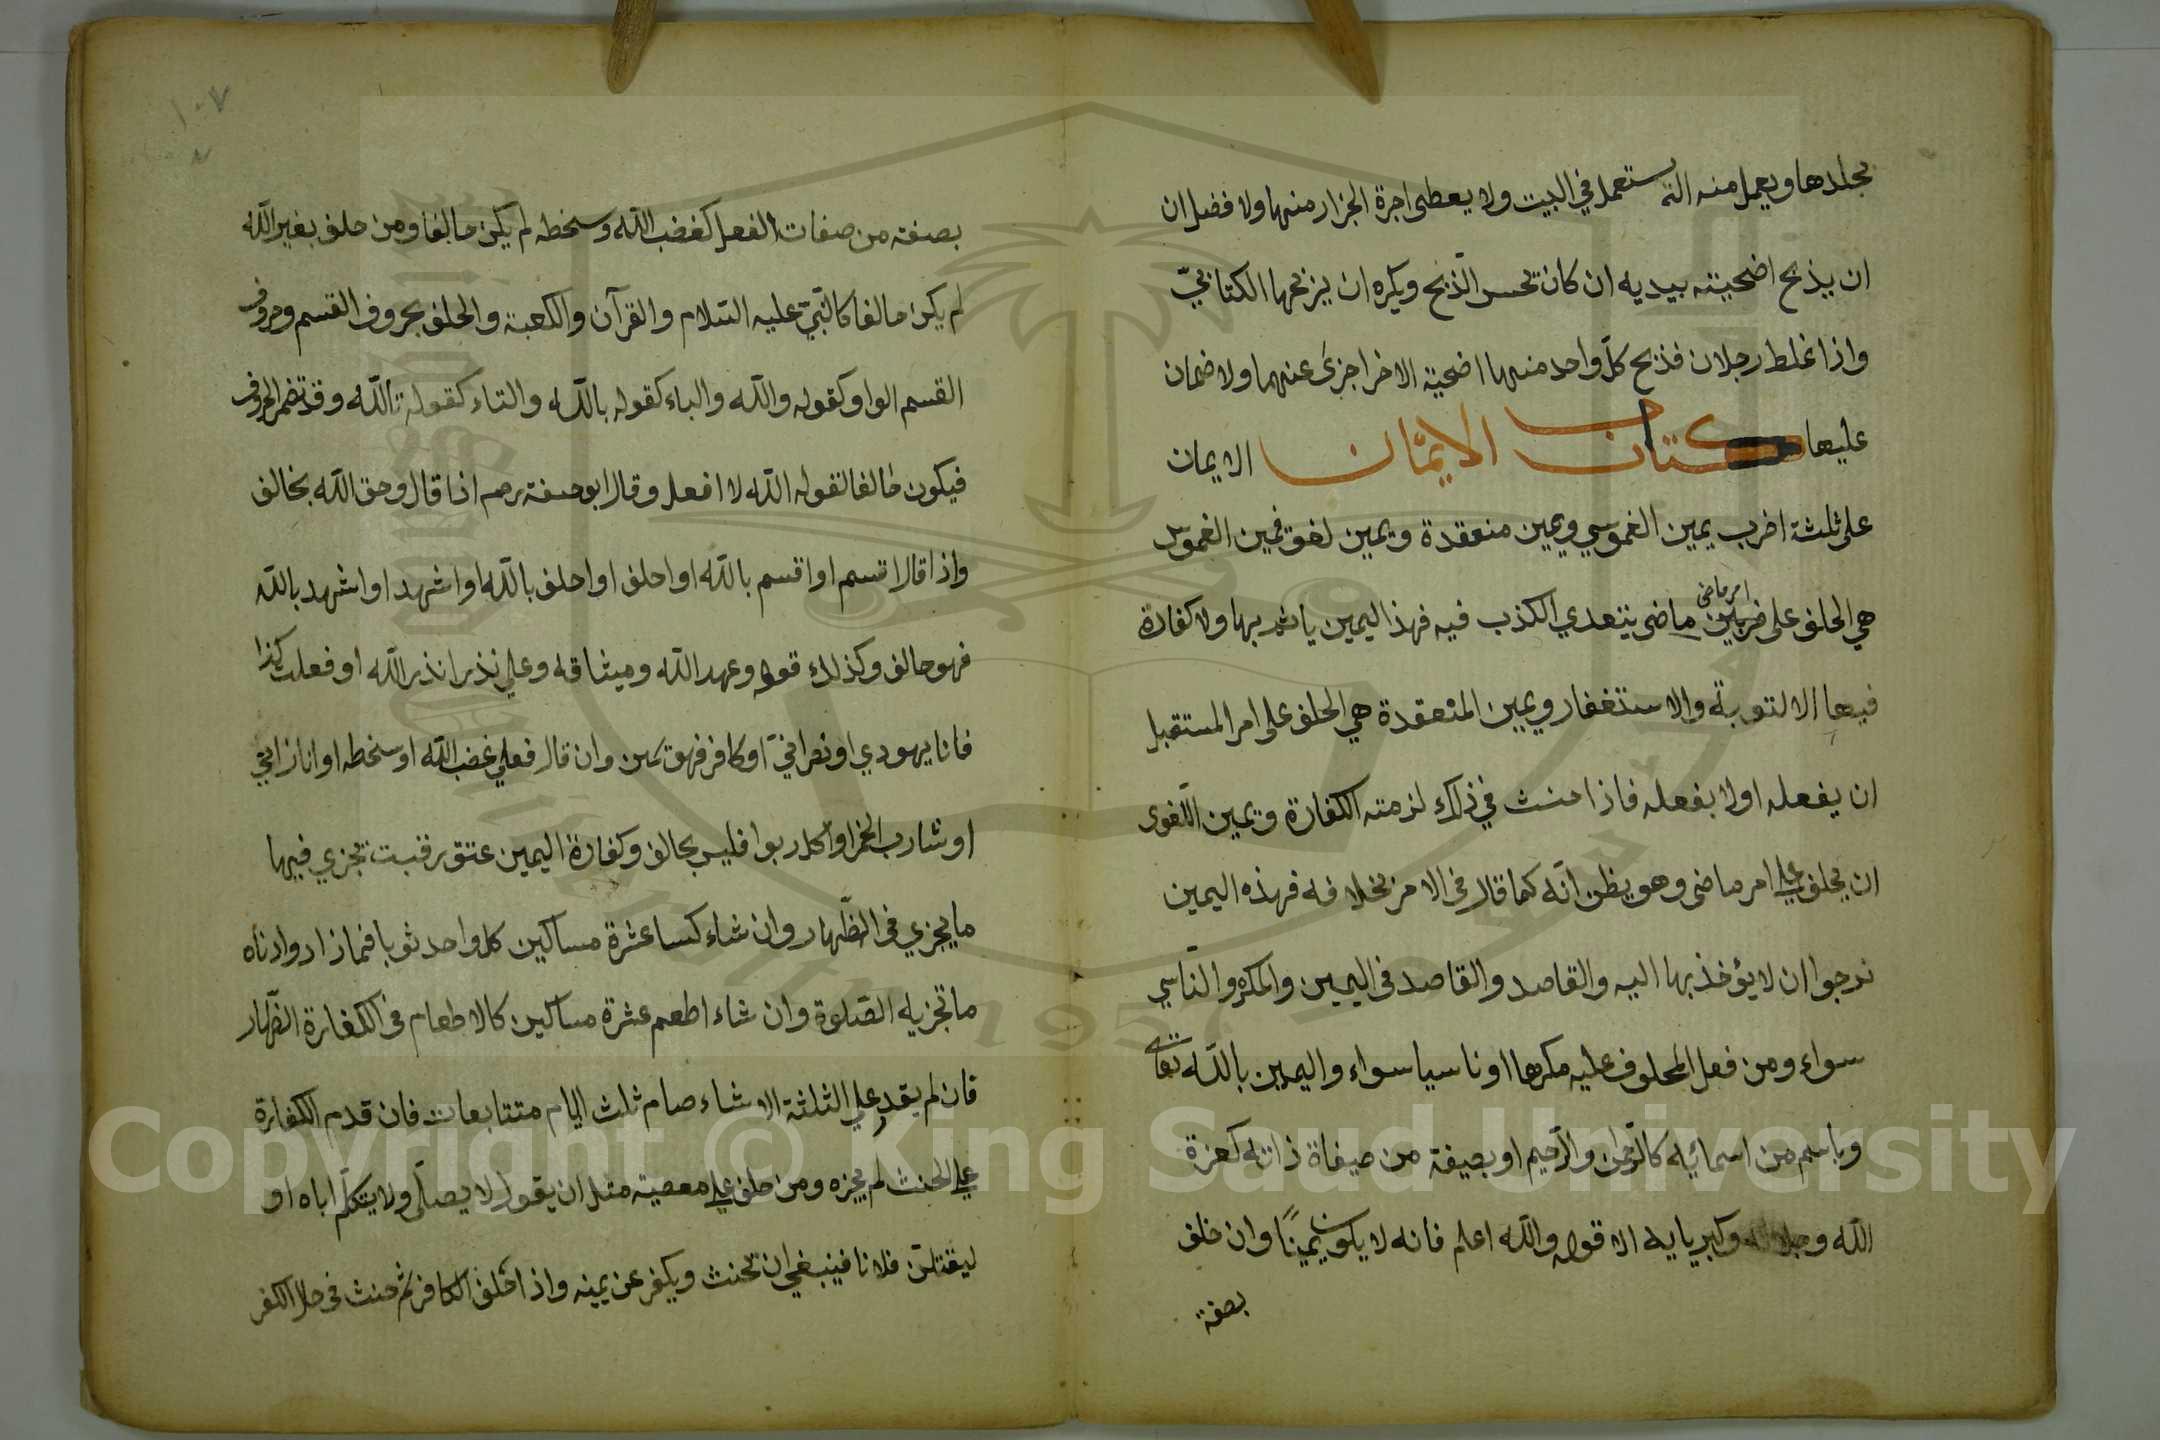 بجلدها ويعمل منه الة يستعمل في البيت ولا يعطى اجرة الجزار منها ولا فضل ان
ان يذبح اضحيته بيديه ان كان يحسن الذبح ويكره ان يزبحها الكتابي
واذا غلط رجلان فذبح كل واحد منهما اضحية الاخر اجزى عنهما ولا ضمان
عليهما كتاب الايمان الايمان
على ثلثة اضرب يمين الغموس ويمين منعقدة ويمين لغو فيمين الغموس
امر ماضى
هي الحلف على ماضى يتعدي الكذب فيه فهذا اليمين ياثم بها ولا كفارة
فيها الا لتوبة والاستغفار ويمين المنعقدة هي الحلف على امر المستقبل
ان يفعله اولا يفعله فاذا حنث في ذلك لزمته الكفارة ويمين اللغوى
ان يحلف على امر ماضى وهو يظن انه كما قال في الامر بخلافه فهذه اليمين
نرجوا ان لا يؤخذ بها اليه والقاصد والقاصد فى اليمين والمكره والناسي
سواء ومن فعل المحلوف عليه مكرها او ناسيا سواء واليمين بالله تعالى
وباسم من اسمائيله كالرحمن والرحيم او بصيفة من صيفاة ذاته كعزة
الله وجلاله وكبريايه الا قوله والله اعلم فانه لا يكون يمينا وان حلف
بصفة
١٠٧
بصفة من صفات الفعل كغضب الله وسخطه لم يكن حالفا ومن حلف بغير الله
لم يكن حالفا كالنبي عليه السلام والقرآن والكعبة والحلف بحروف القسم وحروف
القسم الواو كقوله والله والباء كقوله بالله والتاء كقوله تالله وقد تضمر الحروف
فيكون حالفا لقوله الله لا افعل وقال ابو حنيفة رحمه اذا قال وحق الله بحالف
واذا قال اقسم او اقسم بالله او احلف او احلف بالله او اشهد او اشهد بالله
فهو حالف وكذلك قوله وعهد الله وميثاقه وعلي نذر انذر الله او فعلت كذا
فانا يهودي او نصراني او كافر فهو يمين وان قال فعلي غضب الله او سخطه او انا زاني
او شارب الخمر او اكل ربوا فليس بحالف وكفارة اليمين عتق رقبت تجزي فيها
ما يجزي في الظهار وان شاء كسا عشرة مساكين كل واحد ثوبا فما زاد وادناه
ما تجزيه الصلوة وان شاء اطعم عشرة مساكين كالاطعام فى الكفارة الظهار
فان لم يقدر على الثلثة الاشاء صام ثلث ايام متتابعات فان قدم الكفارة
على الحنث لم يجزه ومن حلف على معصية مثل ان يقول لا يصلى ولا يتكلم اباه او
ليقتلن فلانا فينبغي ان تحنث ويكفر عن يمينه واذا حلف الكافر ثم حنث فى حلال الكفر
Copyright © King Saud University
1957